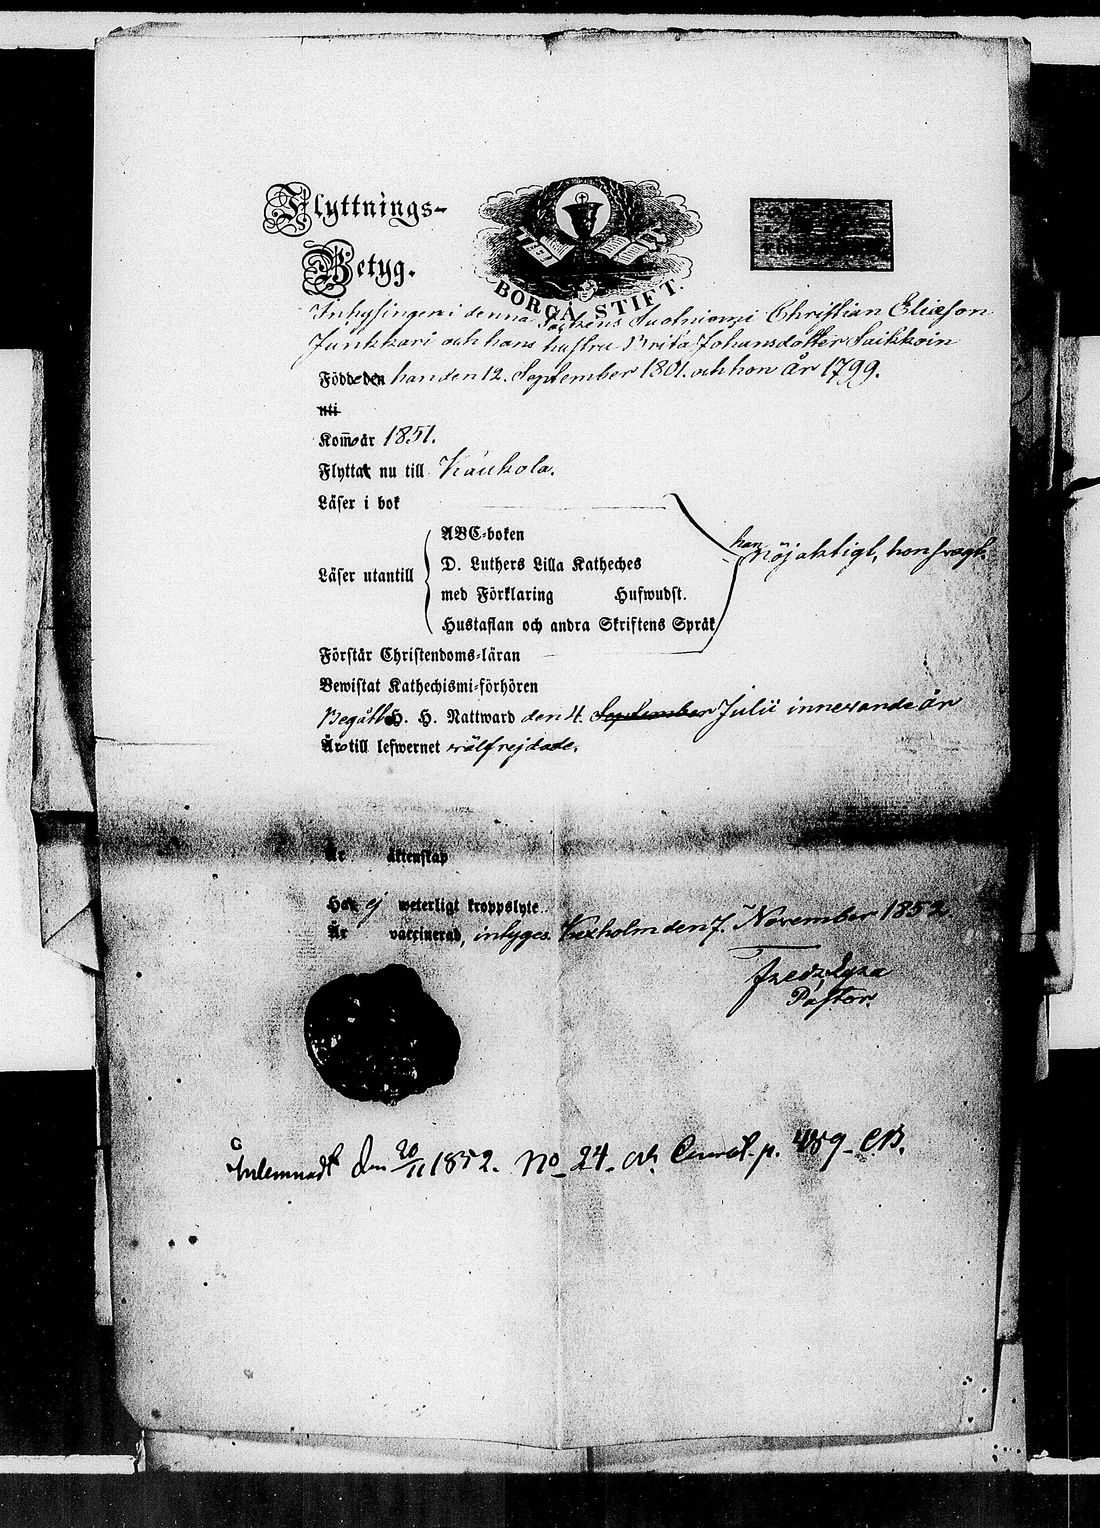 Flyttnings-
Betyg.
BORGÅ STIFT.
Inhysingen i denna Sockens Suotniemi Christian Eliæson
Junkkari och hans hustru Brita Johansdotter Saikkoin
Födde den han den 12. September 1801. och hon år 1799.
uti
Kom̄o år 1851.
Flytta nu till Kaukola.
Läser i bok
ABC-boken
D. Luthers Lilla Katheches
Läser utantill
med Förklaring Hufwudst.
Hustaflan och andra Skriftens Språk
han nöjaktigt, hon swagt.
Förstår Christendoms-läran
Bewistat Kathechismi-förhören
Begått H. H. Nattward den 4. September Julii innewarande år
Äro till lefwernet wälfrejdade.
Är äktenskap
Ha ej weterligt kroppslyte
Är vaccinerad, intygas. Kexholm den 7. November 1852.
Fredr.
Pastor.
Inlemnadt den 20/11 1852. No 24. och p. 489